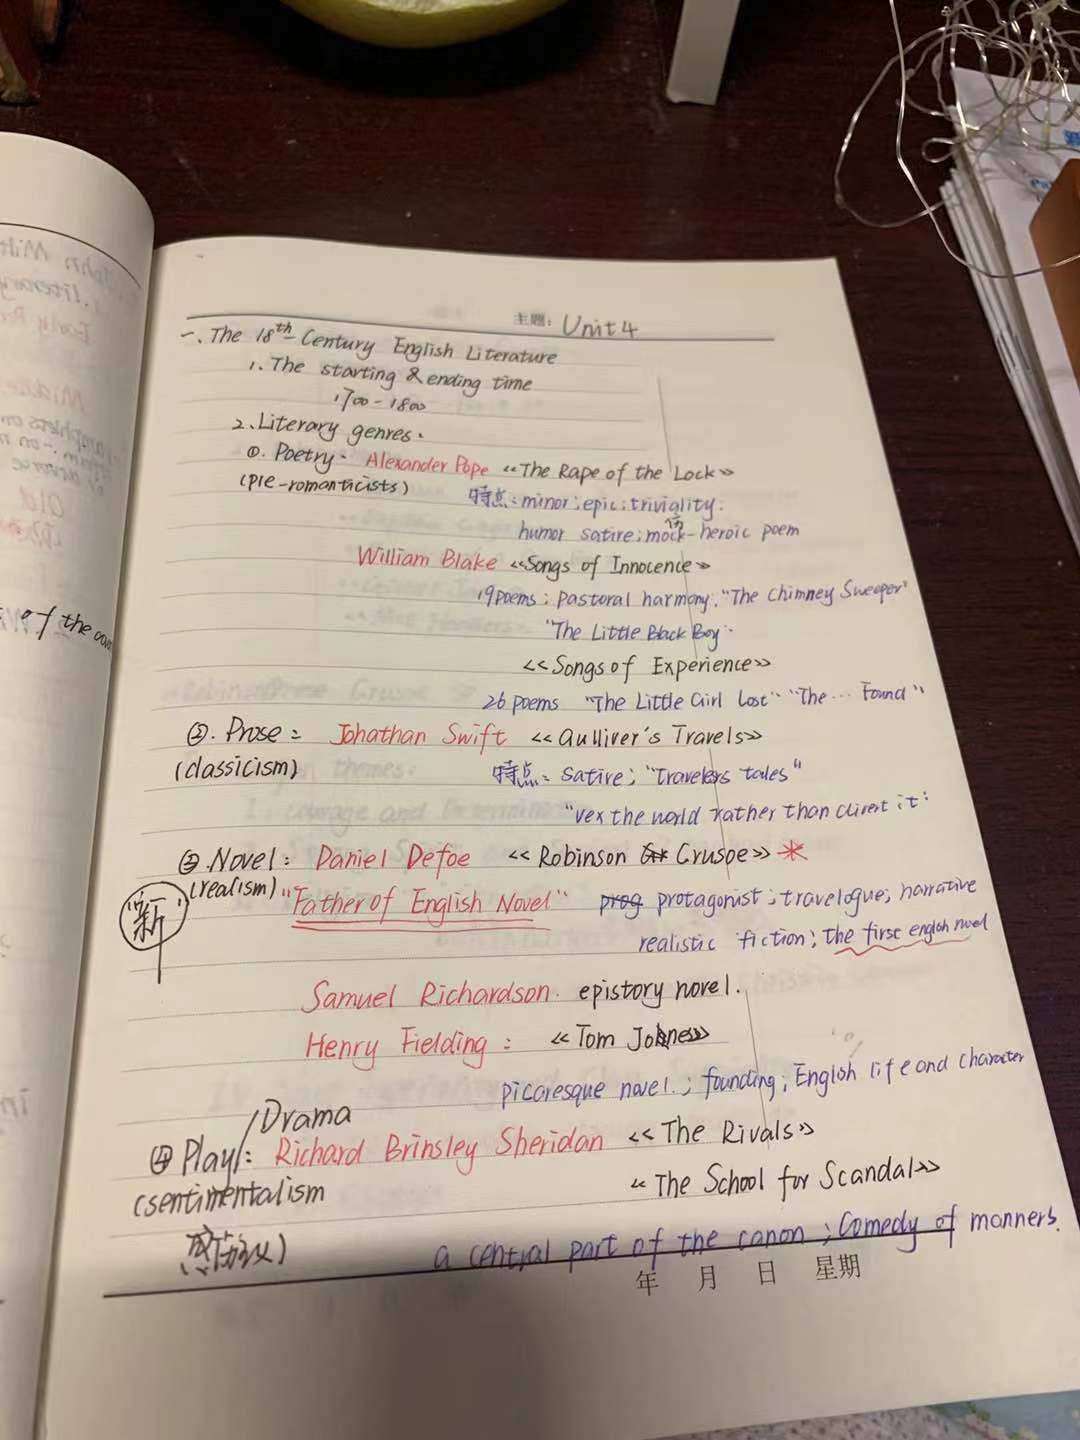 主题: Unit 4
一、The 18th-Century English Literature
1、The starting & ending time
1700-1800
2、Literary genres.
①. Poetry. Alexander Pope <<The Rape of the Lock>>
(pre-romanticists)
特点: minor; epic; triviality;
humor satire; mock-heroic poem
William Blake <<Songs of Innocence>>
19 poems; pastoral harmony. "The Chimney Sweeper"
"The Little Black Boy".
<<Songs of Experience>>
26 poems "The Little Girl Lost" "The ... Found"
②. Prose: Johathan Swift <<Gulliver's Travels>>
(classicism) 特点: Satire; "travelers tales"
"vex the world rather than divert it"
③. Novel: Daniel Defoe <<Robinson Crusoe>> *
(realism) "Father of English Novel" prog protagonist; travelogue; narrative
"新"
realistic fiction; the first english novel
Samuel Richardson. epistory novel.
Henry Fielding: <<Tom Jones>>
picaresque novel.; founding; English life and character
④ Play/Drama: Richard Brinsley Sheridan <<The Rivals>>
(sentimentalism <<The School for Scandal>>
a central part of the canon; Comedy of manners.
年 月 日 星期
of the